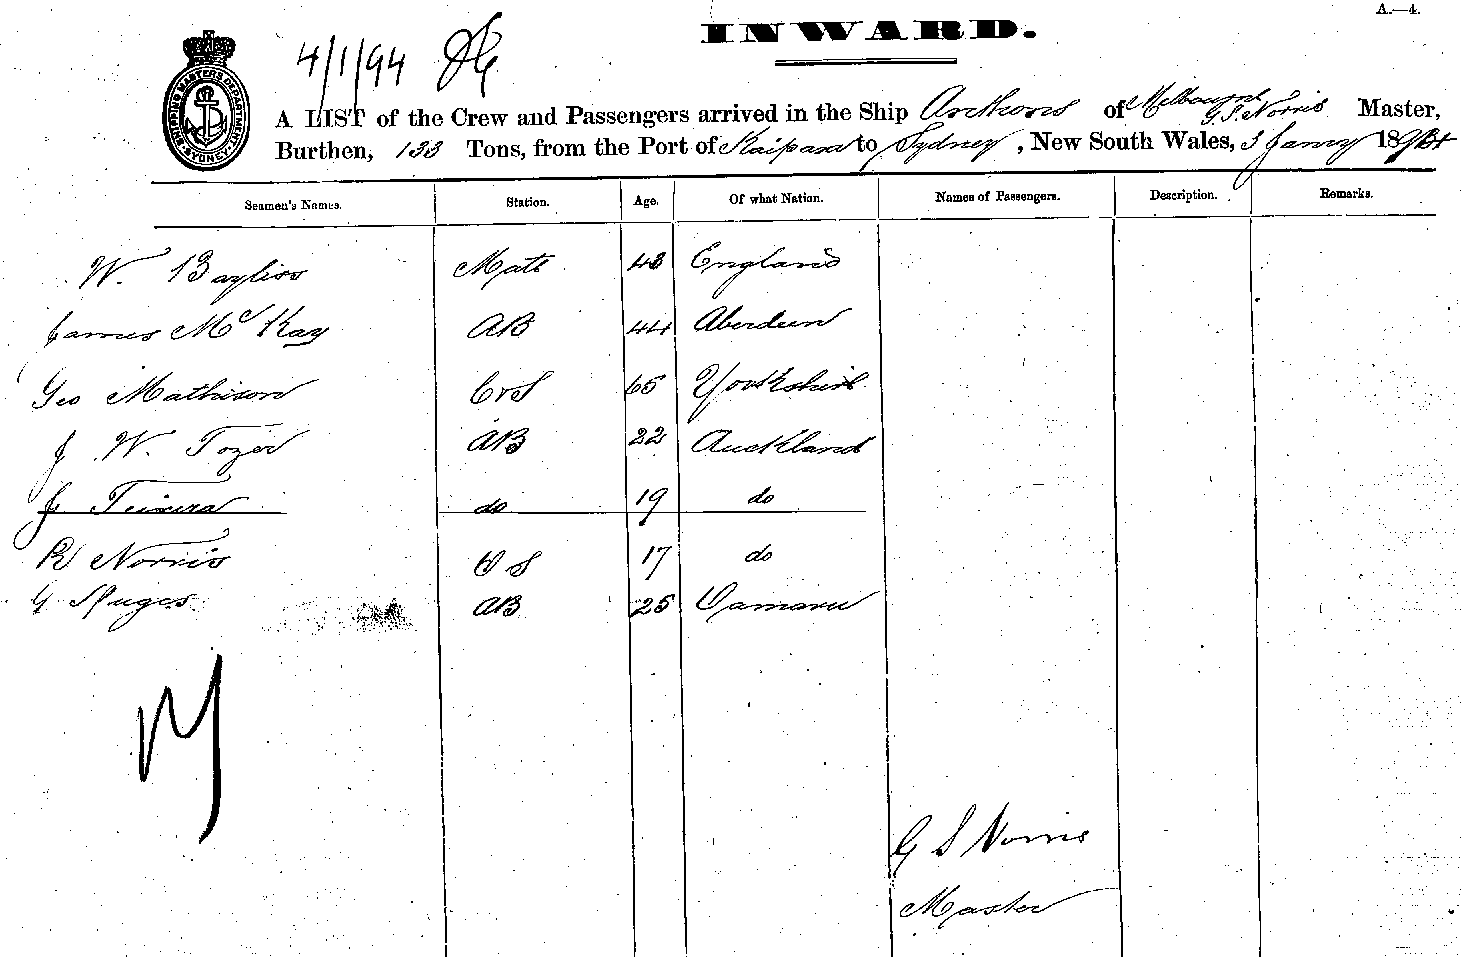 A.—4.
INWARD.
4/1/94
SHIPPING MASTER'S DEPARTMENT SYDNEY
A LIST of the Crew and Passengers arrived in the Ship of Melbourne G. S. Norris Master,
Burthen, 133 Tons, from the Port of Kaipara to Sydney, New South Wales, 3 Janry 1894
Seamen's Names. Station. Age. Of what Nation. Names of Passengers. Description. Remarks.
W. Bayliss Mate 43 England
James McKay AB 44 Aberdeen
Geo Mathison C & S 65 Yorkshire
J W. Tozer AB 22 Auckland
J Teixera do 19 do
R Norris O S 17 do
G AB 25 Oamaru
G S Norris
Master